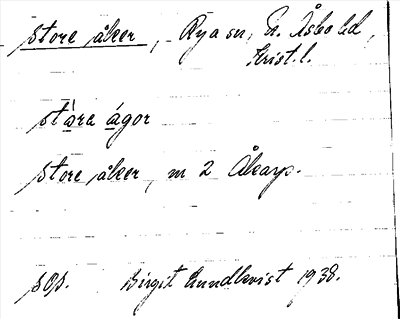 store åker, Rya sn, N. Åsbo hd,
Krist. l.
ståra ágor
store åker, m 2 Åkarp.
sOp. Birgit Lundkvist 1938.